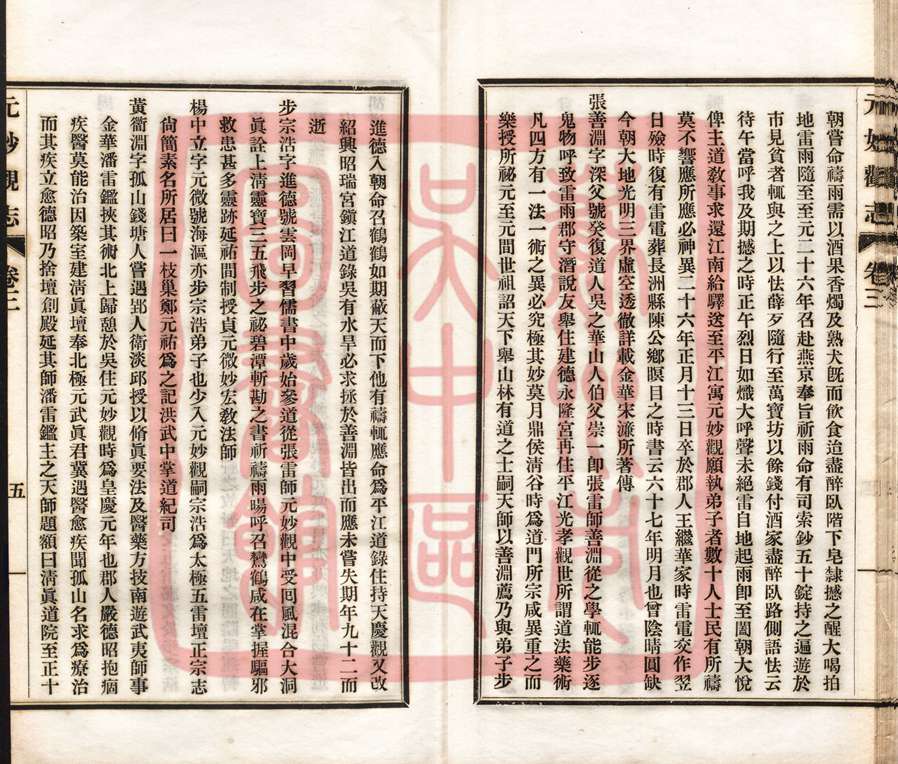 朝嘗命禱雨需以酒果香燭及熟犬既而飲食迨盡醉臥階下皂隸撼之醒大喝拍
地雷雨隨至至元二十六年召赴燕京奉旨祈雨命有司索鈔五十錠持之遍遊於
市見貧者輒與之上以怯薛歹隨行至萬寶坊以餘錢付酒家盡醉臥路側語怯云
待午當呼我及期撼之時正午烈日如熾大呼聲未絕雷自地起雨卽至闔朝大悅
俾主道敎事求還江南給驛送至平江寓元妙觀願執弟子者數十人士民有所禱
莫不響應所應必神異二十六年正月十三日卒於郡人王繼華家時雷電交作翌
日殮時復有雷電葬長洲縣陳公鄉瞑目之時書云六十七年明月也曾陰晴圓缺
今朝大地光明三界虛空透徹詳載金華宋濂所著傳
張善淵字深父號癸復道人吳之華山人伯父崇一卽張雷師善淵從之學輒能步逐
鬼物呼致雷雨郡守潛說友舉住建德永隆宮再住平江光孝觀世所謂道法藥術
凡四方有一法一術之異必究極其妙莫月鼎侯淸谷時爲道門所宗咸異重之而
藥授所祕元至元間世祖詔天下舉山林有道之士嗣天師以善淵薦乃與弟子步
元妙觀志 卷三
進德入朝命召鶴鶴如期蔽天而下他有禱輒應命爲平江道錄住持天慶觀又改
紹興昭瑞宮鎭江道錄吳有水旱必求拯於善淵皆出而應未嘗失期年九十二而
逝
步宗浩字進德號雲岡早習儒書中歲始參道從張雷師元妙觀中受囘風混合大洞
眞詮上淸靈寶三五飛步之祕碧潭斬勘之書祈禱雨暘呼召鸞鶴咸在掌握驅邪
救患甚多靈跡延祐間制授貞元微妙宏敎法師
楊中立字元微號海漚亦步宗浩弟子也少入元妙觀嗣宗浩爲太極五雷壇正宗志
尙簡素名所居曰一枝巢鄭元祐爲之記洪武中掌道紀司
黃衢淵字孤山錢塘人嘗遇郢人衛淡邱授以脩眞要法及醫藥方技南遊武夷師事
金華潘雷鑑挾其術北上歸憩於吳住元妙觀時爲皇慶元年也郡人嚴德昭抱痼
疾醫莫能治因築室建淸眞壇奉北極元武眞君冀遇醫愈疾聞孤山名求爲療治
而其疾立愈德昭乃捨壇創殿延其師潘雷鑑主之天師題額曰淸眞道院至正十
元妙觀志 卷三 五
蘇州市吳中區圖書館